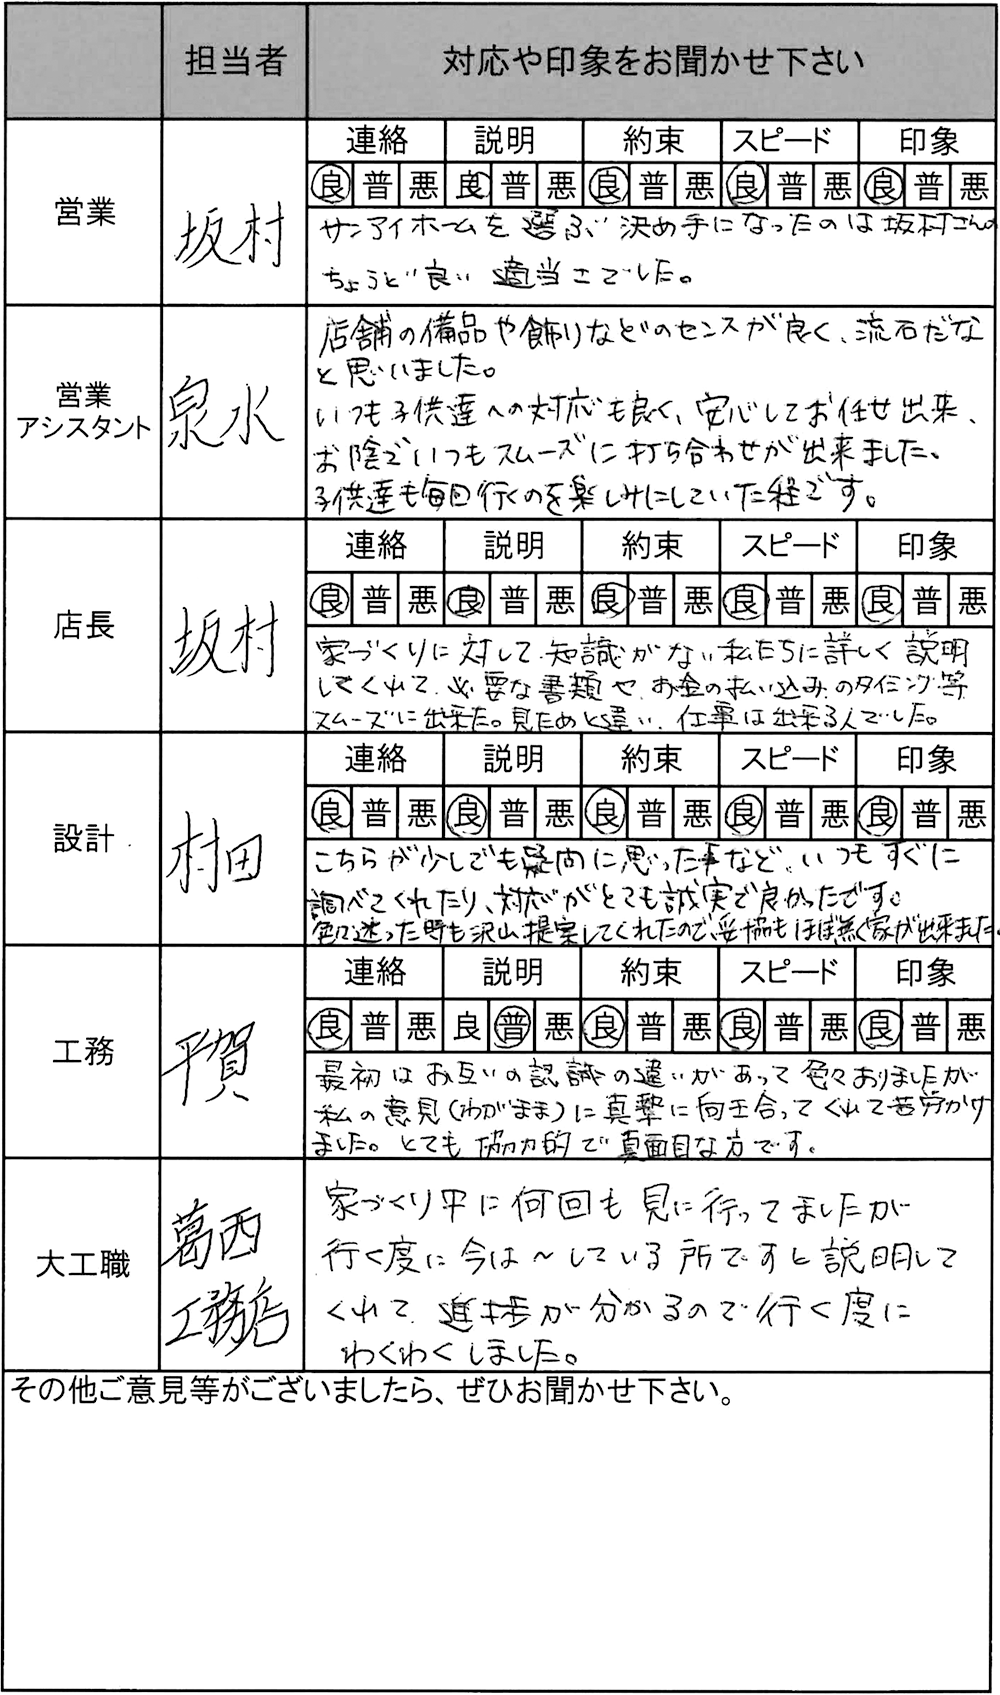 担当者 対応や印象をお聞かせ下さい
連絡 説明 約束 スピード 印象
良 普 悪 良 普 悪 良 普 悪 良 普 悪 良 普 悪
営業 坂村
サンアイホームを選ぶ決め手になったのは坂村さんの
ちょうど良い適当さでした。
営業
アシスタント 泉水
店舗の備品や飾りなどのセンスが良く、流石だな
と思いました。
いつも子供達への対応も良く、安心してお任せ出来、
お陰でいつもスムーズに打ち合わせが出来ました。
子供達も毎回行くのを楽しみにしていた程です。
連絡 説明 約束 スピード 印象
良 普 悪 良 普 悪 良 普 悪 良 普 悪 良 普 悪
店長 坂村
家づくりに対して知識がない私たちに詳しく説明
してくれて、必要な書類や、お金の払い込みのタイミング等
スムーズに出来た。見ためと違い、仕事は出来る人でした。
連絡 説明 約束 スピード 印象
良 普 悪 良 普 悪 良 普 悪 良 普 悪 良 普 悪
設計 村田
こちらが少しでも疑問に思った事など、いつもすぐに
調べてくれたり、対応がとても誠実で良かったです。
色々迷った時も沢山提案してくれたので、妥協もほぼ無く家が出来ました。
連絡 説明 約束 スピード 印象
良 普 悪 良 普 悪 良 普 悪 良 普 悪 良 普 悪
工務 平賀
最初はお互いの認識の違いがあって色々ありましたが
私の意見(わがまま)に真摯に向き合ってくれて苦労かけ
ました。とても協力的で真面目な方です。
大工職 葛西
工務店
家づくり中に何回も見に行ってましたが
行く度に今は〜している所ですと説明して
くれて、進捗が分かるので行く度に
わくわくしました。
その他ご意見等がございましたら、ぜひお聞かせ下さい。